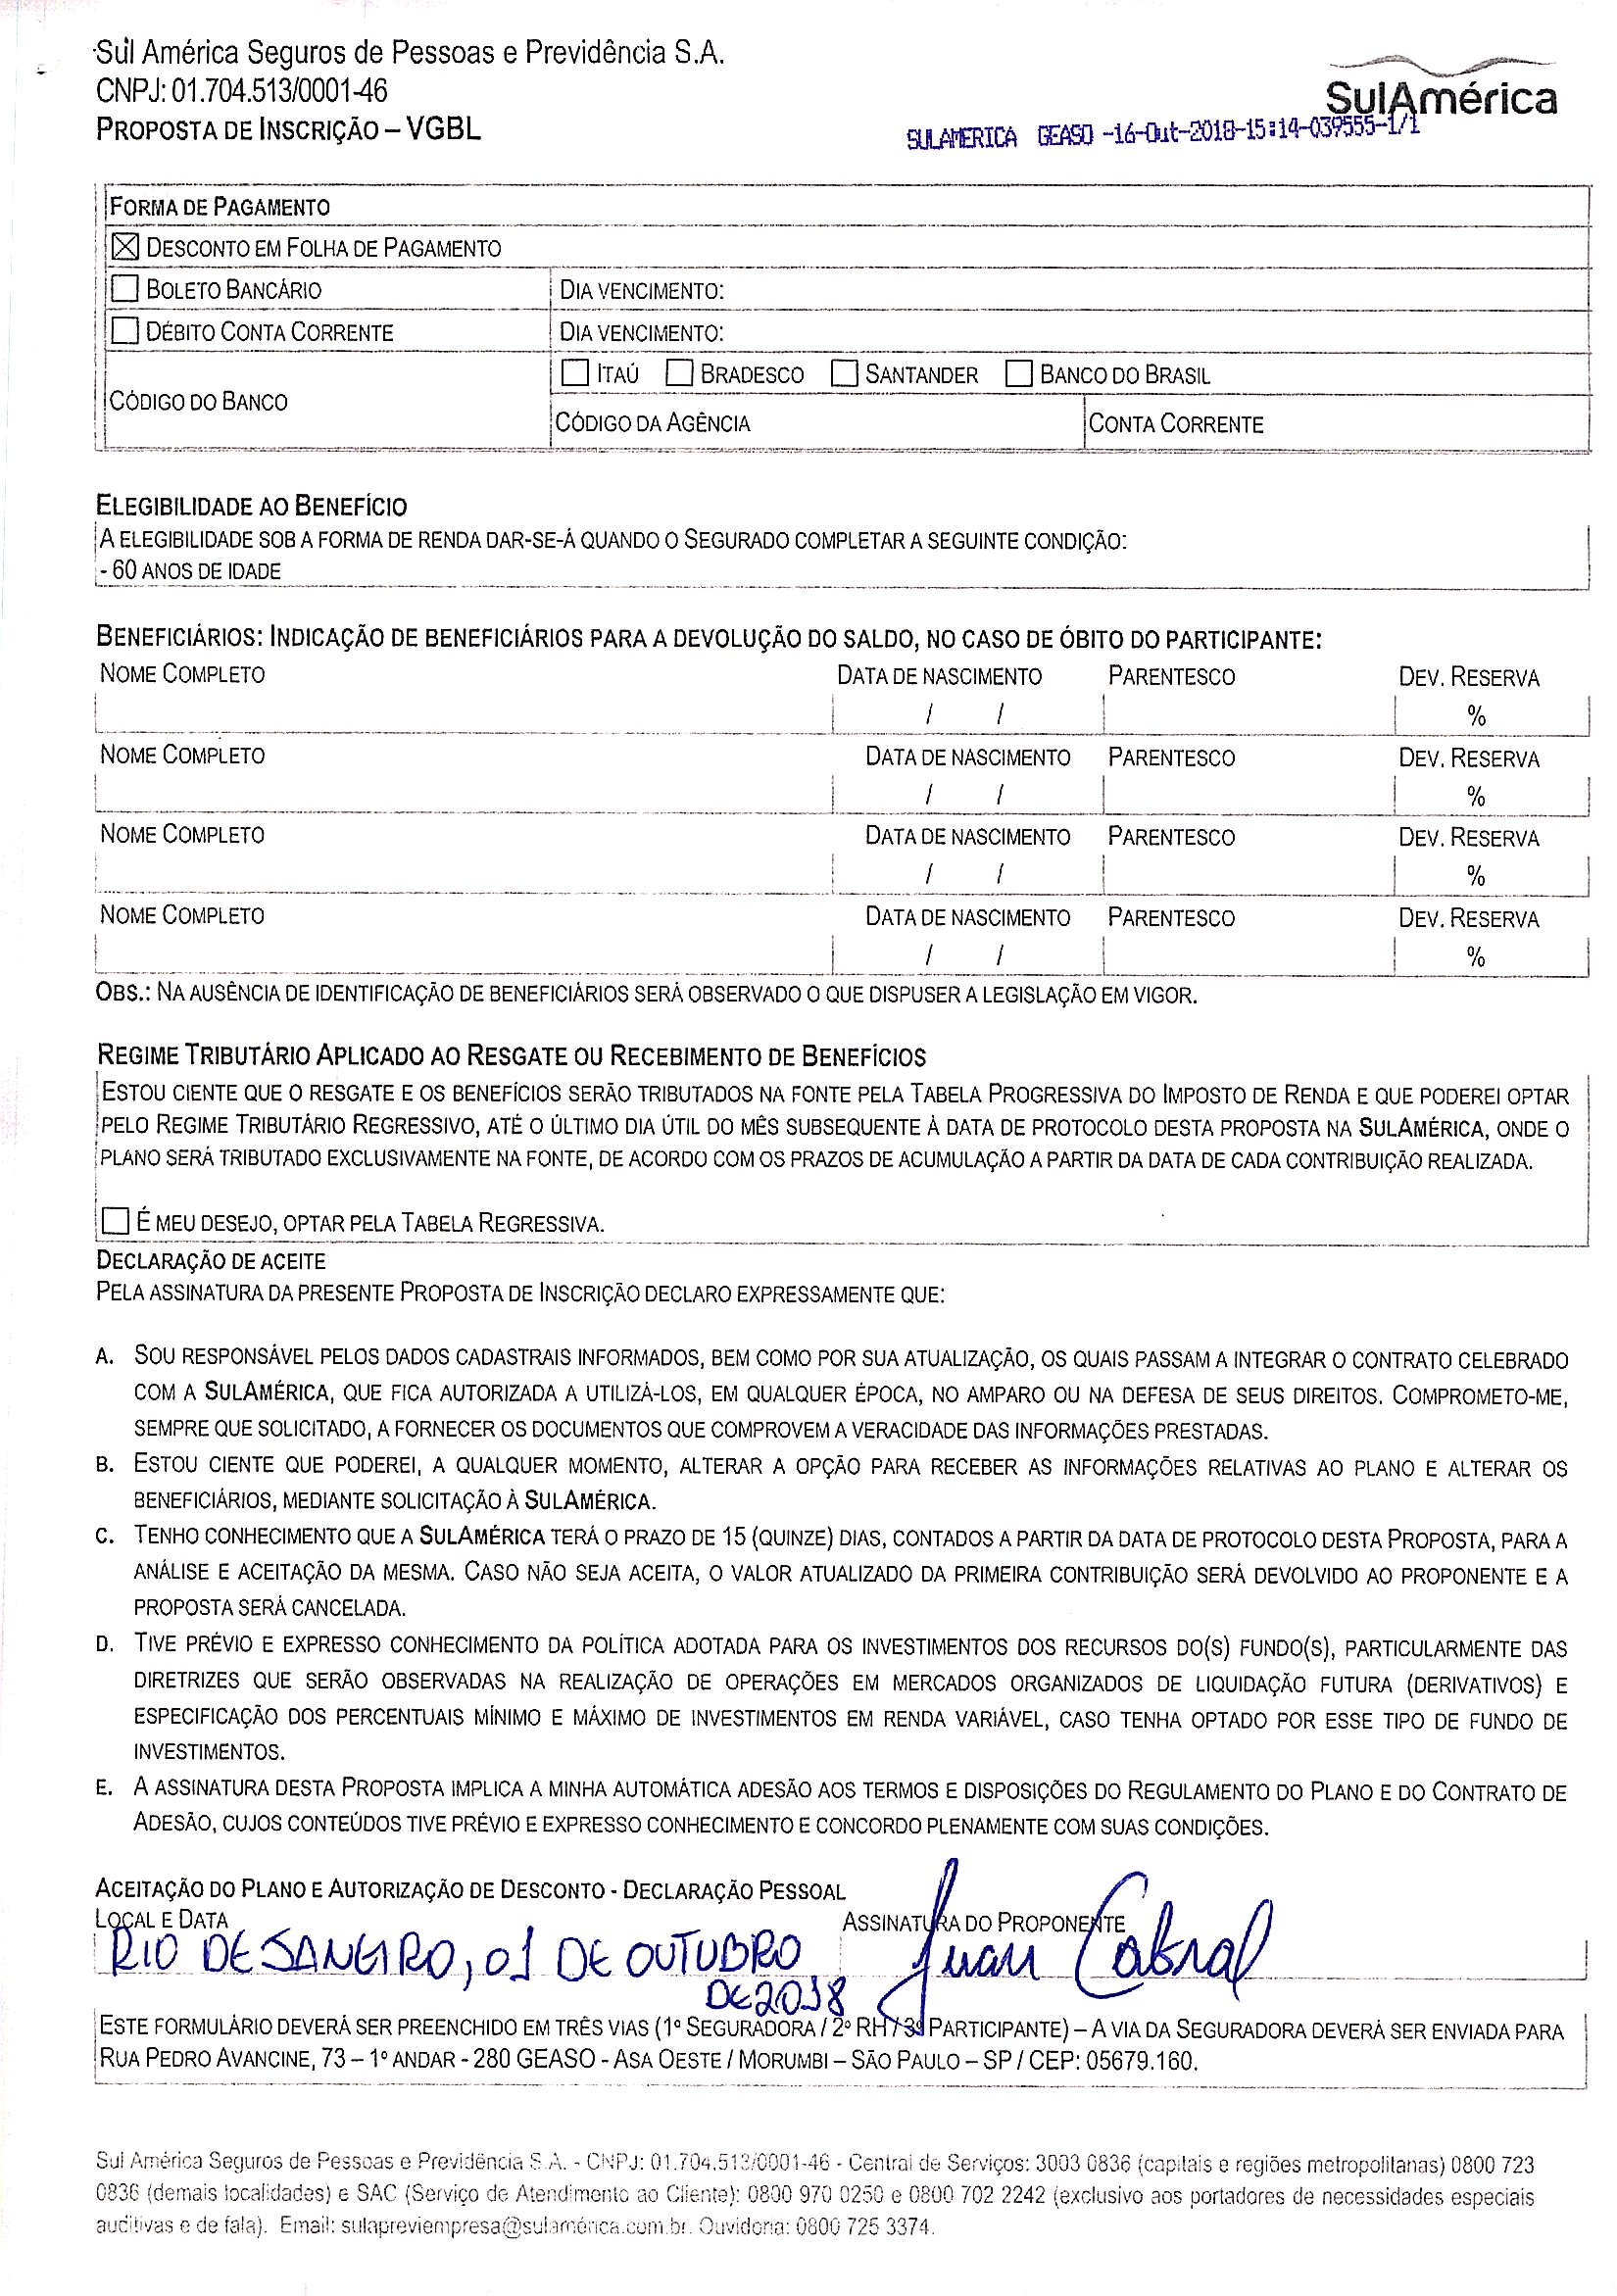 Sul América Seguros de Pessoas e Previdência S.A.
CNPJ: 01.704.513/0001-46
PROPOSTA DE INSCRIÇÃO – VGBL
SulAmérica
SULAMERICA GEASO -16-Out-2018-15:14-039555-1/1
FORMA DE PAGAMENTO
DESCONTO EM FOLHA DE PAGAMENTO
BOLETO BANCÁRIO DIA VENCIMENTO:
DÉBITO CONTA CORRENTE DIA VENCIMENTO:
ITAÚ BRADESCO SANTANDER BANCO DO BRASIL
CÓDIGO DO BANCO
CÓDIGO DA AGÊNCIA CONTA CORRENTE
ELEGIBILIDADE AO BENEFÍCIO
A ELEGIBILIDADE SOB A FORMA DE RENDA DAR-SE-Á QUANDO O SEGURADO COMPLETAR A SEGUINTE CONDIÇÃO:
- 60 ANOS DE IDADE
BENEFICIÁRIOS: INDICAÇÃO DE BENEFICIÁRIOS PARA A DEVOLUÇÃO DO SALDO, NO CASO DE ÓBITO DO PARTICIPANTE:
NOME COMPLETO DATA DE NASCIMENTO PARENTESCO DEV. RESERVA
/ / %
NOME COMPLETO DATA DE NASCIMENTO PARENTESCO DEV. RESERVA
/ / %
NOME COMPLETO DATA DE NASCIMENTO PARENTESCO DEV. RESERVA
/ / %
NOME COMPLETO DATA DE NASCIMENTO PARENTESCO DEV. RESERVA
/ / %
OBS.: NA AUSÊNCIA DE IDENTIFICAÇÃO DE BENEFICIÁRIOS SERÁ OBSERVADO O QUE DISPUSER A LEGISLAÇÃO EM VIGOR.
REGIME TRIBUTÁRIO APLICADO AO RESGATE OU RECEBIMENTO DE BENEFÍCIOS
ESTOU CIENTE QUE O RESGATE E OS BENEFÍCIOS SERÃO TRIBUTADOS NA FONTE PELA TABELA PROGRESSIVA DO IMPOSTO DE RENDA E QUE PODEREI OPTAR
PELO REGIME TRIBUTÁRIO REGRESSIVO, ATÉ O ÚLTIMO DIA ÚTIL DO MÊS SUBSEQUENTE À DATA DE PROTOCOLO DESTA PROPOSTA NA SULAMÉRICA, ONDE O
PLANO SERÁ TRIBUTADO EXCLUSIVAMENTE NA FONTE, DE ACORDO COM OS PRAZOS DE ACUMULAÇÃO A PARTIR DA DATA DE CADA CONTRIBUIÇÃO REALIZADA.
É MEU DESEJO, OPTAR PELA TABELA REGRESSIVA.
DECLARAÇÃO DE ACEITE
PELA ASSINATURA DA PRESENTE PROPOSTA DE INSCRIÇÃO DECLARO EXPRESSAMENTE QUE:
A. SOU RESPONSÁVEL PELOS DADOS CADASTRAIS INFORMADOS, BEM COMO POR SUA ATUALIZAÇÃO, OS QUAIS PASSAM A INTEGRAR O CONTRATO CELEBRADO
COM A SULAMÉRICA, QUE FICA AUTORIZADA A UTILIZÁ-LOS, EM QUALQUER ÉPOCA, NO AMPARO OU NA DEFESA DE SEUS DIREITOS. COMPROMETO-ME,
SEMPRE QUE SOLICITADO, A FORNECER OS DOCUMENTOS QUE COMPROVEM A VERACIDADE DAS INFORMAÇÕES PRESTADAS.
B. ESTOU CIENTE QUE PODEREI, A QUALQUER MOMENTO, ALTERAR A OPÇÃO PARA RECEBER AS INFORMAÇÕES RELATIVAS AO PLANO E ALTERAR OS
BENEFICIÁRIOS, MEDIANTE SOLICITAÇÃO À SULAMÉRICA.
C. TENHO CONHECIMENTO QUE A SULAMÉRICA TERÁ O PRAZO DE 15 (QUINZE) DIAS, CONTADOS A PARTIR DA DATA DE PROTOCOLO DESTA PROPOSTA, PARA A
ANÁLISE E ACEITAÇÃO DA MESMA. CASO NÃO SEJA ACEITA, O VALOR ATUALIZADO DA PRIMEIRA CONTRIBUIÇÃO SERÁ DEVOLVIDO AO PROPONENTE E A
PROPOSTA SERÁ CANCELADA.
D. TIVE PRÉVIO E EXPRESSO CONHECIMENTO DA POLÍTICA ADOTADA PARA OS INVESTIMENTOS DOS RECURSOS DO(S) FUNDO(S), PARTICULARMENTE DAS
DIRETRIZES QUE SERÃO OBSERVADAS NA REALIZAÇÃO DE OPERAÇÕES EM MERCADOS ORGANIZADOS DE LIQUIDAÇÃO FUTURA (DERIVATIVOS) E
ESPECIFICAÇÃO DOS PERCENTUAIS MÍNIMO E MÁXIMO DE INVESTIMENTOS EM RENDA VARIÁVEL, CASO TENHA OPTADO POR ESSE TIPO DE FUNDO DE
INVESTIMENTOS.
E. A ASSINATURA DESTA PROPOSTA IMPLICA A MINHA AUTOMÁTICA ADESÃO AOS TERMOS E DISPOSIÇÕES DO REGULAMENTO DO PLANO E DO CONTRATO DE
ADESÃO, CUJOS CONTEÚDOS TIVE PRÉVIO E EXPRESSO CONHECIMENTO E CONCORDO PLENAMENTE COM SUAS CONDIÇÕES.
ACEITAÇÃO DO PLANO E AUTORIZAÇÃO DE DESCONTO - DECLARAÇÃO PESSOAL
LOCAL E DATA ASSINATURA DO PROPONENTE
RIO DE JANEIRO, 01 DE OUTUBRO Juan Cabral
DE 2018
ESTE FORMULÁRIO DEVERÁ SER PREENCHIDO EM TRÊS VIAS (1º SEGURADORA / 2º RH / 3º PARTICIPANTE) – A VIA DA SEGURADORA DEVERÁ SER ENVIADA PARA
RUA PEDRO AVANCINE, 73 – 1º ANDAR - 280 GEASO - ASA OESTE / MORUMBI – SÃO PAULO – SP / CEP: 05679.160.
Sul América Seguros de Pessoas e Previdência S.A. - CNPJ: 01.704.513/0001-46 - Central de Serviços: 3003 0836 (capitais e regiões metropolitanas) 0800 723
0836 (demais localidades) e SAC (Serviço de Atendimento ao Cliente): 0800 970 0250 e 0800 702 2242 (exclusivo aos portadores de necessidades especiais
auditivas e de fala). Email: sulapreviempresa@sulamérica.com.br. Ouvidoria: 0800 725 3374.